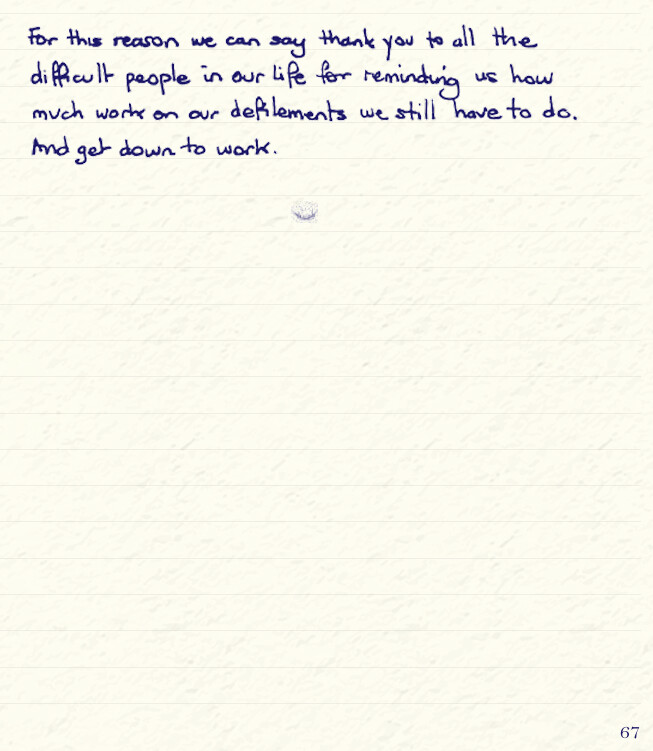 For this reason we can say thank you to all the
difficult people in our life for reminding us how
much work on our defilements we still have to do.
And get down to work.
67